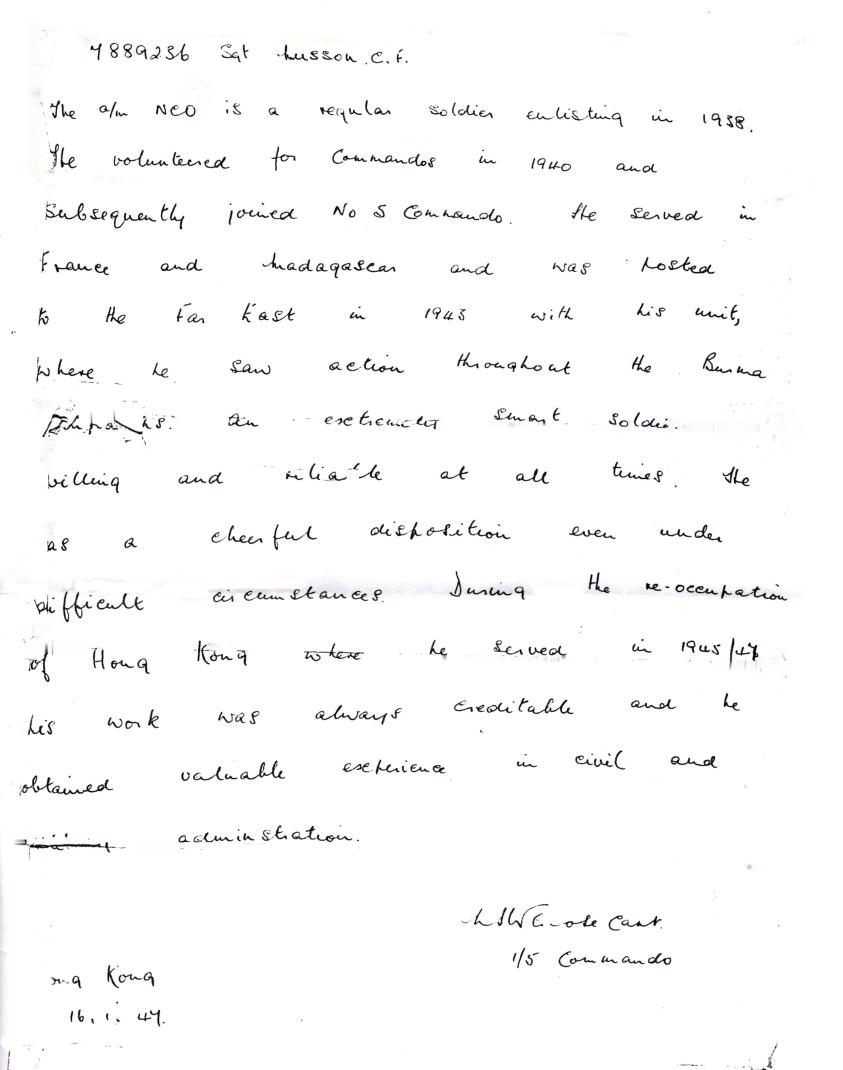 7889236 Sgt Husson. C. F.
The a/m NCO is a regular soldier enlisting in 1938.
He volunteered for Commandos in 1940 and
subsequently joined No 5 Commando. He served in
France and Madagascar and was posted
to the Far East in 1943 with his unit,
where he saw action throughout the Burma
An extremely smart soldier.
willing and reliable at all times. He
as a cheerful disposition even under
difficult circumstances. During the re-occupation
of Hong Kong where he served in 1945/47
his work was always creditable and he
obtained valuable experience in civil and
adminstration.
Capt.
1/5 Commando
Kong
16. 1. 47.